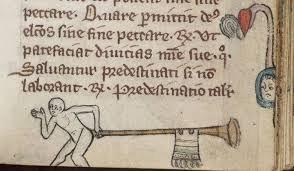 peccare. Quare permittit de'
elcos sine fine peccare. R. Vt
patefaciat diuitias mīe sue. q'.
Saluantur predestinati si nō
laborant. R. Predestinatio tali